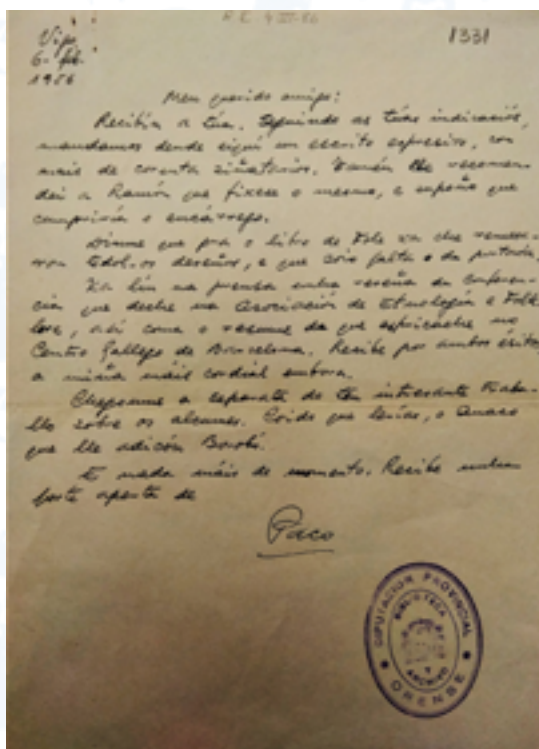 R.E. 9-III-86
1331
Vigo,
6- feb.
1956
Meu querido amigo:
Recibín a túa. Seguindo as túas indicaciós,
mandamos dende eiquí un escrito expresivo, con
mais de corenta sinatarios. Tamén lle recomen-
dei a Ramón que fixese o mesmo, e supoño que
compriría o encárrego.
Dinme que pra o libro de Fole xa che
os deseños, e que sólo falta o da portada.
Xa lin na prensa unha reseña da conferen-
cia que deche na Asociación de Etnología e Folk-
lore, así coma o resume da que espricache no
Centro Gallego de Barcelona. Recibe por ambos éxitos
a miña máis cordial embora.
Chegoume a separata do teu intresante traba-
llo sobre os alcumes. Coido que lerías, o
que lle adicou Borobó.
E nada máis de momento. Recibe unha
forte aperta de
Paco
DIPUTACION PROVINCIAL
BIBLIOTECA
Y
ARCHIVO
ORENSE